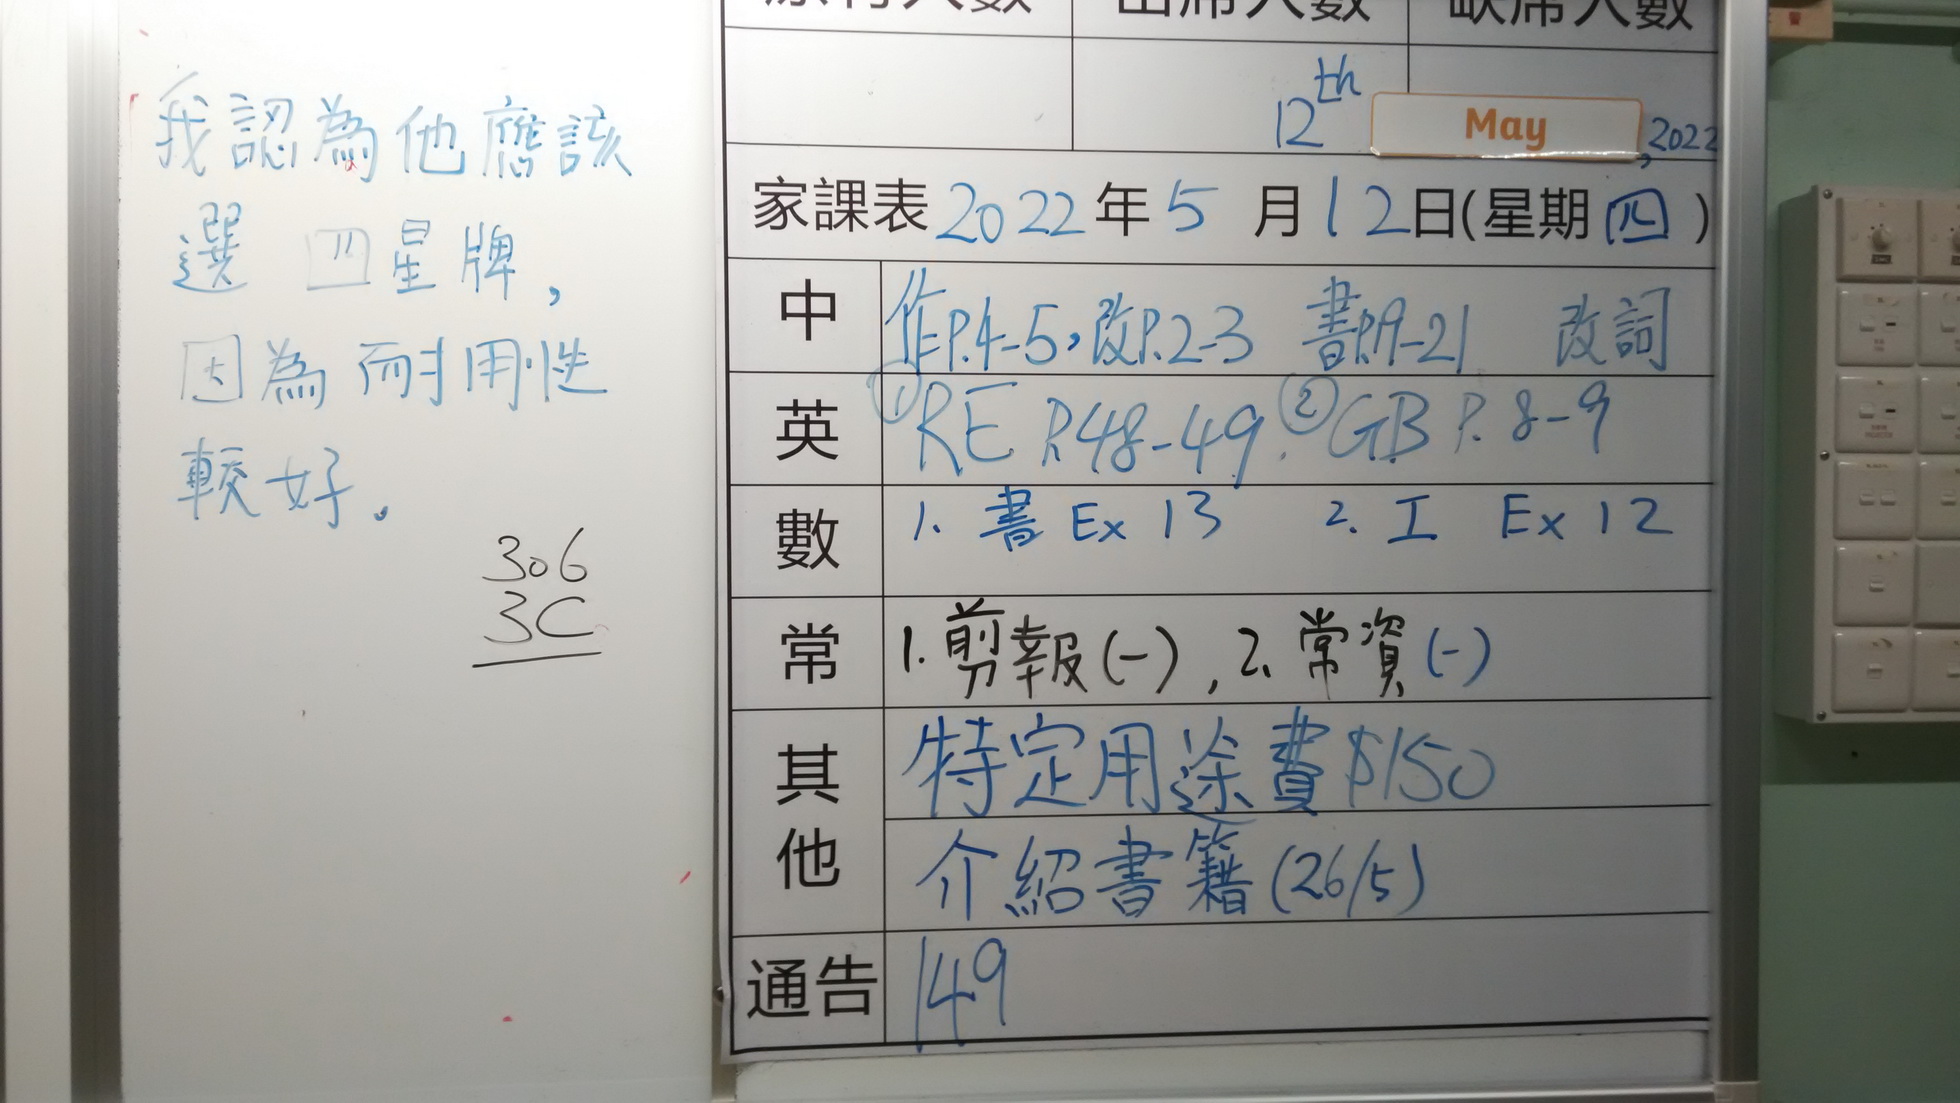 我認為他應該
選四星牌，
因為耐用性
較好。
306
3C
原有人數 出席人數 缺席人數
12th May, 2022
家課表 2022年5月12日(星期四)
中 作P.4-5，改P.2-3 書P.19-21 改詞
英 ①RE P.48-49. ②GB P. 8-9
數 1. 書 Ex 13 2. 工 Ex 12
常 1. 剪報(一), 2. 常資(一)
其他 特定用途費$150
介紹書籍(26/5)
通告 149